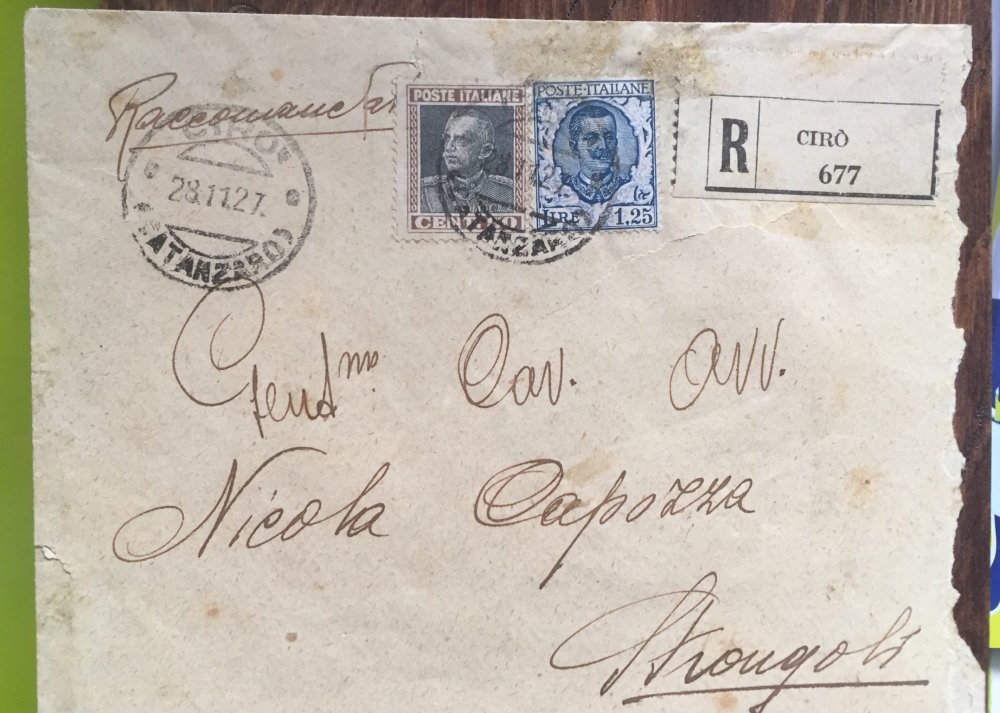 Raccomandata
CIRÒ
28.11.27.
(CATANZARO)
POSTE ITALIANE
POSTE·ITALIANE
LIRE 1.25
CATANZARO
R CIRÒ
677
Gent.mo Cav. Avv.
Nicola Capozza
Strongoli